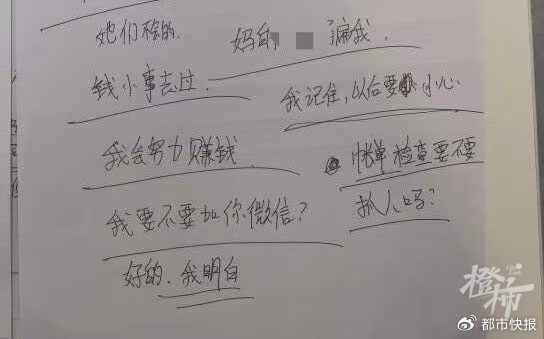 她们给的.
妈的 骗我.
钱小事去过.
我记住,以后要小心
我会努力赚钱
帐单检查要不要
抓人吗?
我要不要加你微信?
好的.我明白
橙柿
都市快报